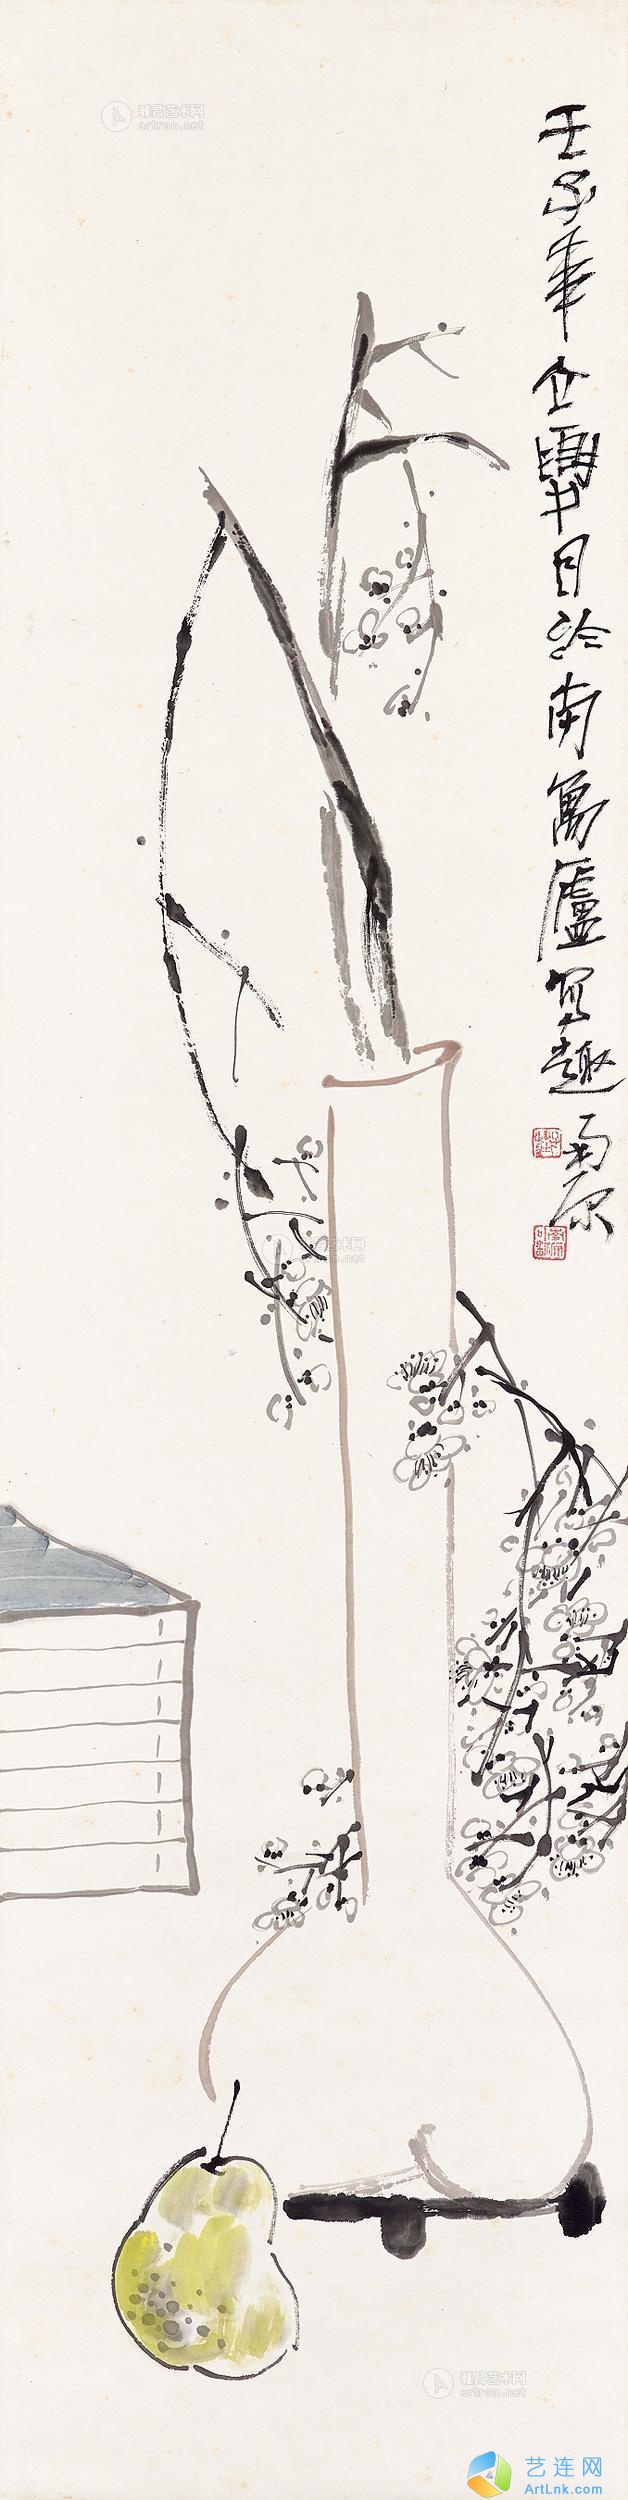 雅昌艺术网
artron.net
壬子年立日於南萬廬寫趣 南原
雅昌艺术网
artron.net
雅昌艺术网
artron.net
艺连网
ArtLnk.com